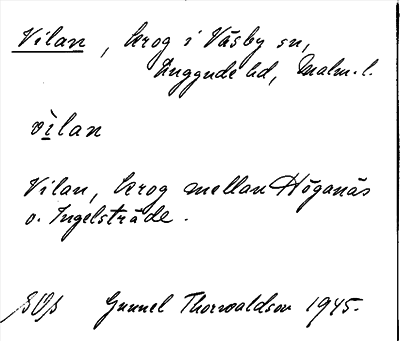 Vilan, krog i Väsby sn,
Luggude hd, Malm. l.
vìlan
Vilan, krog mellan Höganäs
o. Ingelsträde.
Gunnel Thorwaldson 1945.